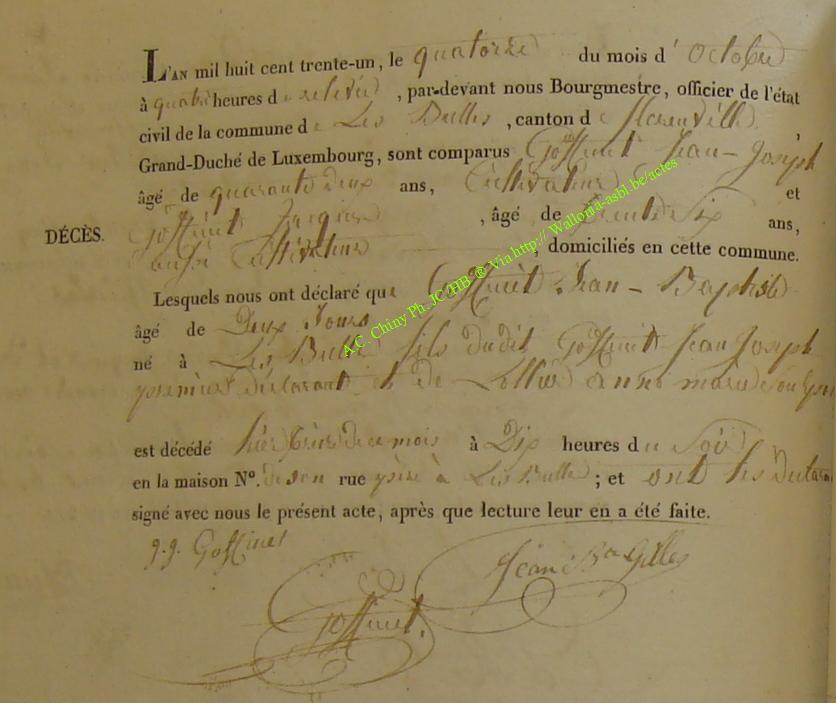 L'AN mil huit cent trente-un, le quatorze du mois d' octobre
à quatre heures de relevée, par-devant nous Bourgmestre, officier de l'état
civil de la commune de Les Bulles, canton de Florenville,
Grand-Duché de Luxembourg, sont comparus Goffinet Jean-Joseph
âgé de quarante deux ans, Cultivateur et
DÉCÈS. Goffinet , âgé de trente six ans,
aussi Cultivateur , domiciliés en cette commune.
Lesquels nous ont déclaré que Goffinet Jean-Baptiste
âgé de Deux Jours
né à Les Bulles fils dudit Goffinet Jean Joseph
premier déclarant et de Lottier anne marie son
est décédé hier treize de ce mois à Dix heures du Soir
en la maison N°. de son rue père à Les Bulles ; et ont les
signé avec nous le présent acte, après que lecture leur en a été faite.
j.j. Goffinet
Jean Bte Gilles
Goffinet.
A.C. Chiny Ph. JC/HB ® Via http://Wallonia-asbl.be/actes